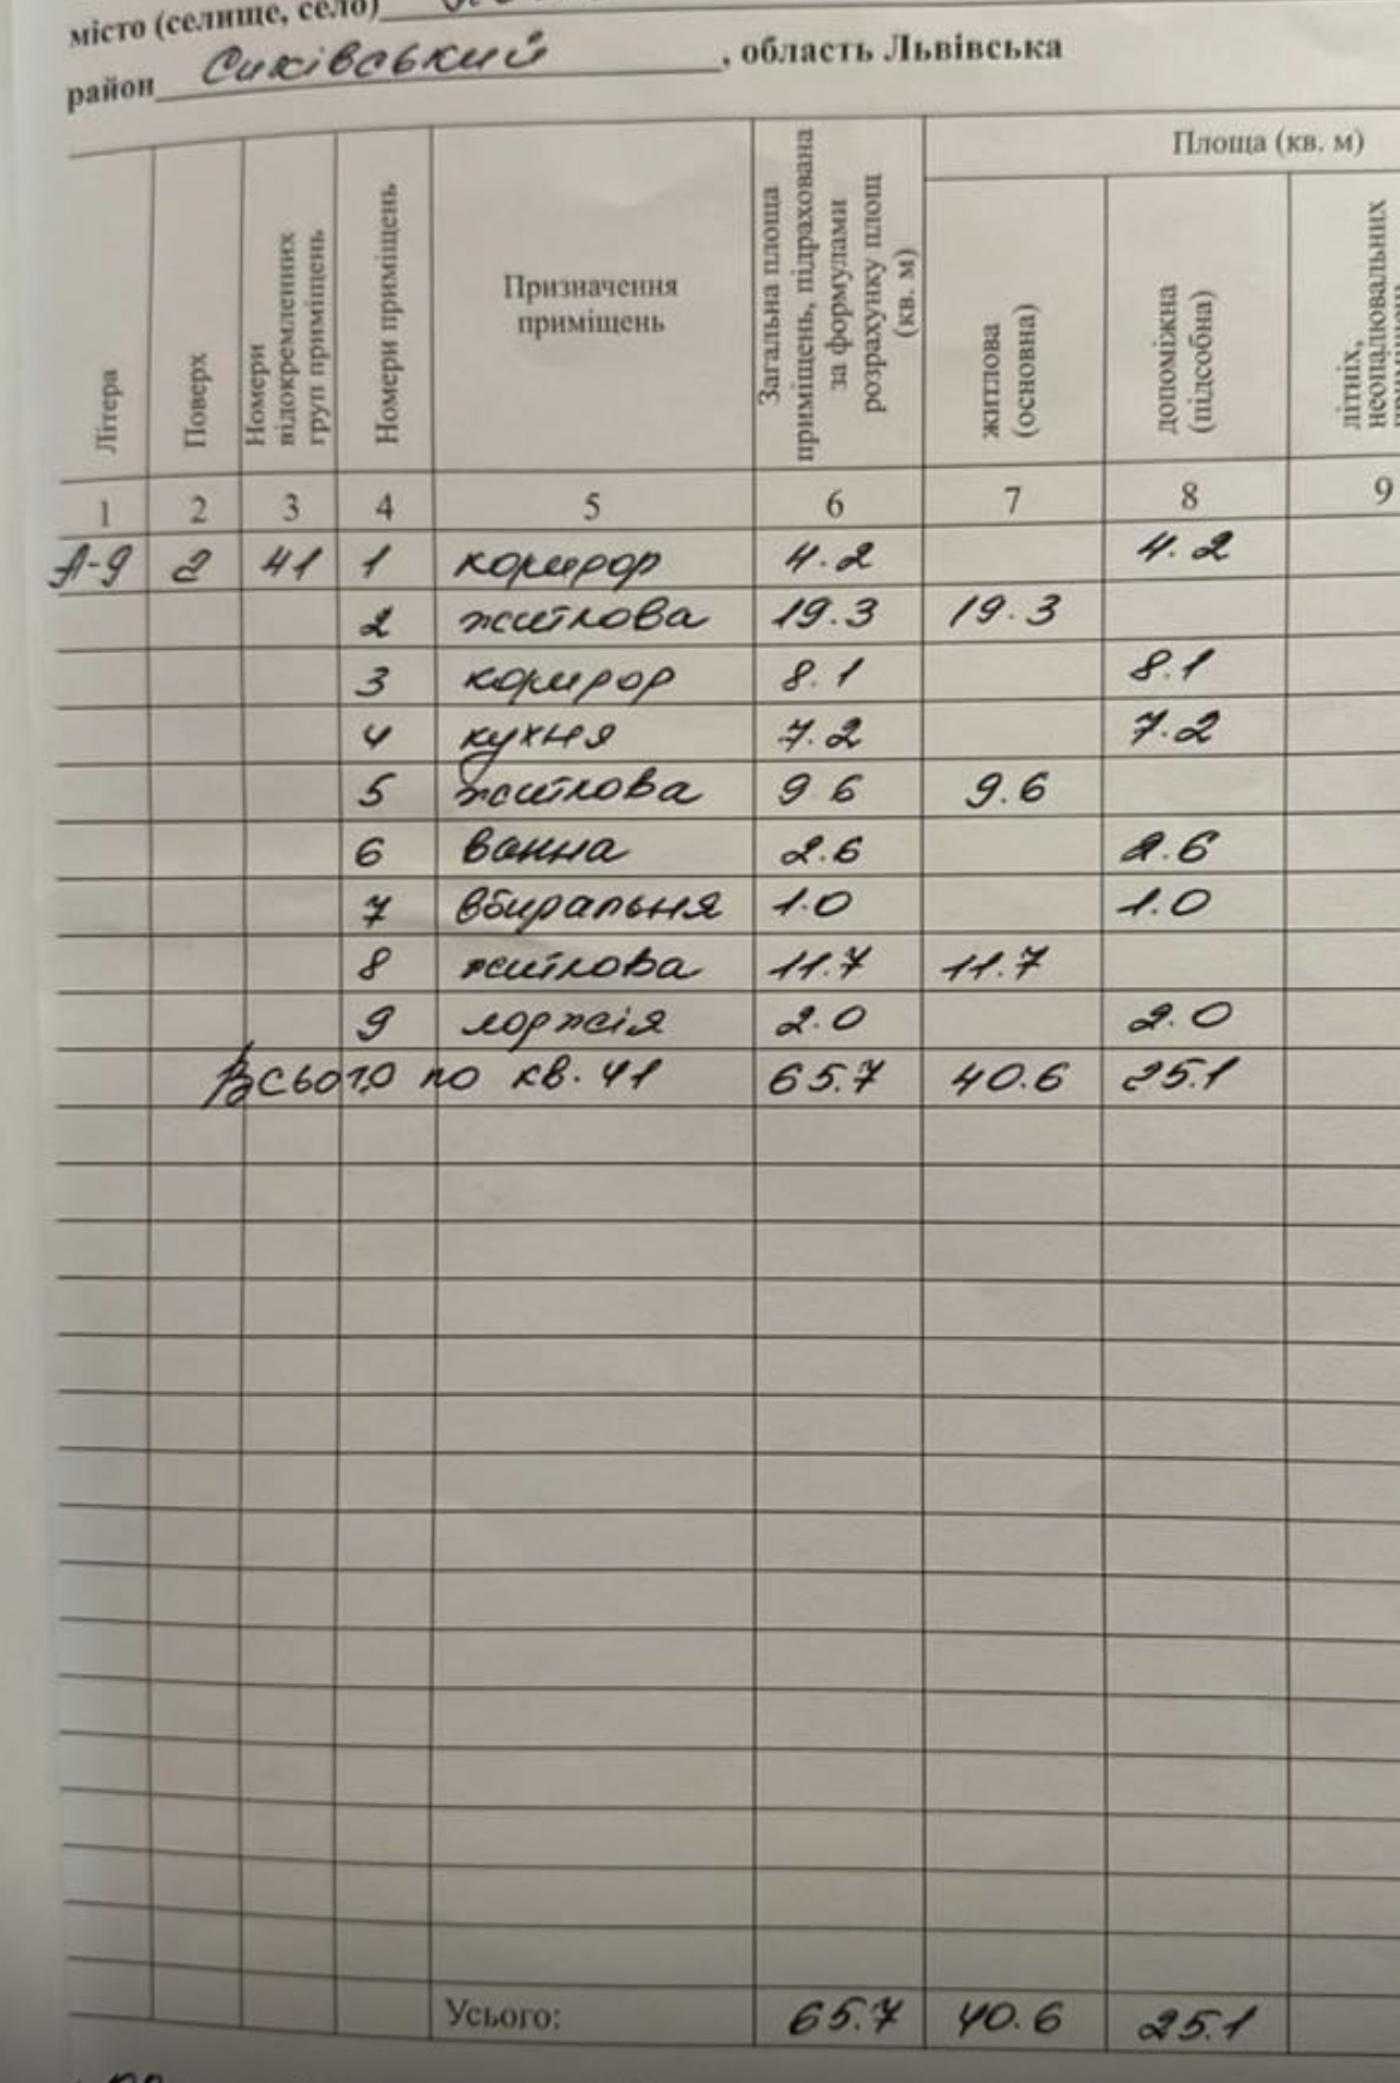 місто (селище, село)
район Сихівський, область Львівська
Літера
Поверх
Номери відокремленних груп приміщень
Номери приміщень
Призначення приміщень
Загальна площа приміщень, підрахована за формулами розрахунку площ (кв. м)
Площа (кв. м)
житлова (основна)
допоміжна (підсобна)
літніх, неопалювальних
1 2 3 4 5 6 7 8 9
А-9 2 41 1 коридор 4.2 4.2
2 житлова 19.3 19.3
3 коридор 8.1 8.1
4 кухня 7.2 7.2
5 житлова 9 6 9.6
6 ванна 2.6 2.6
7 вбиральня 1.0 1.0
8 житлова 11.7 11.7
9 лоржія 2.0 2.0
Всього по кв. 41 65.7 40.6 25.1
Усього: 65.7 40.6 25.1